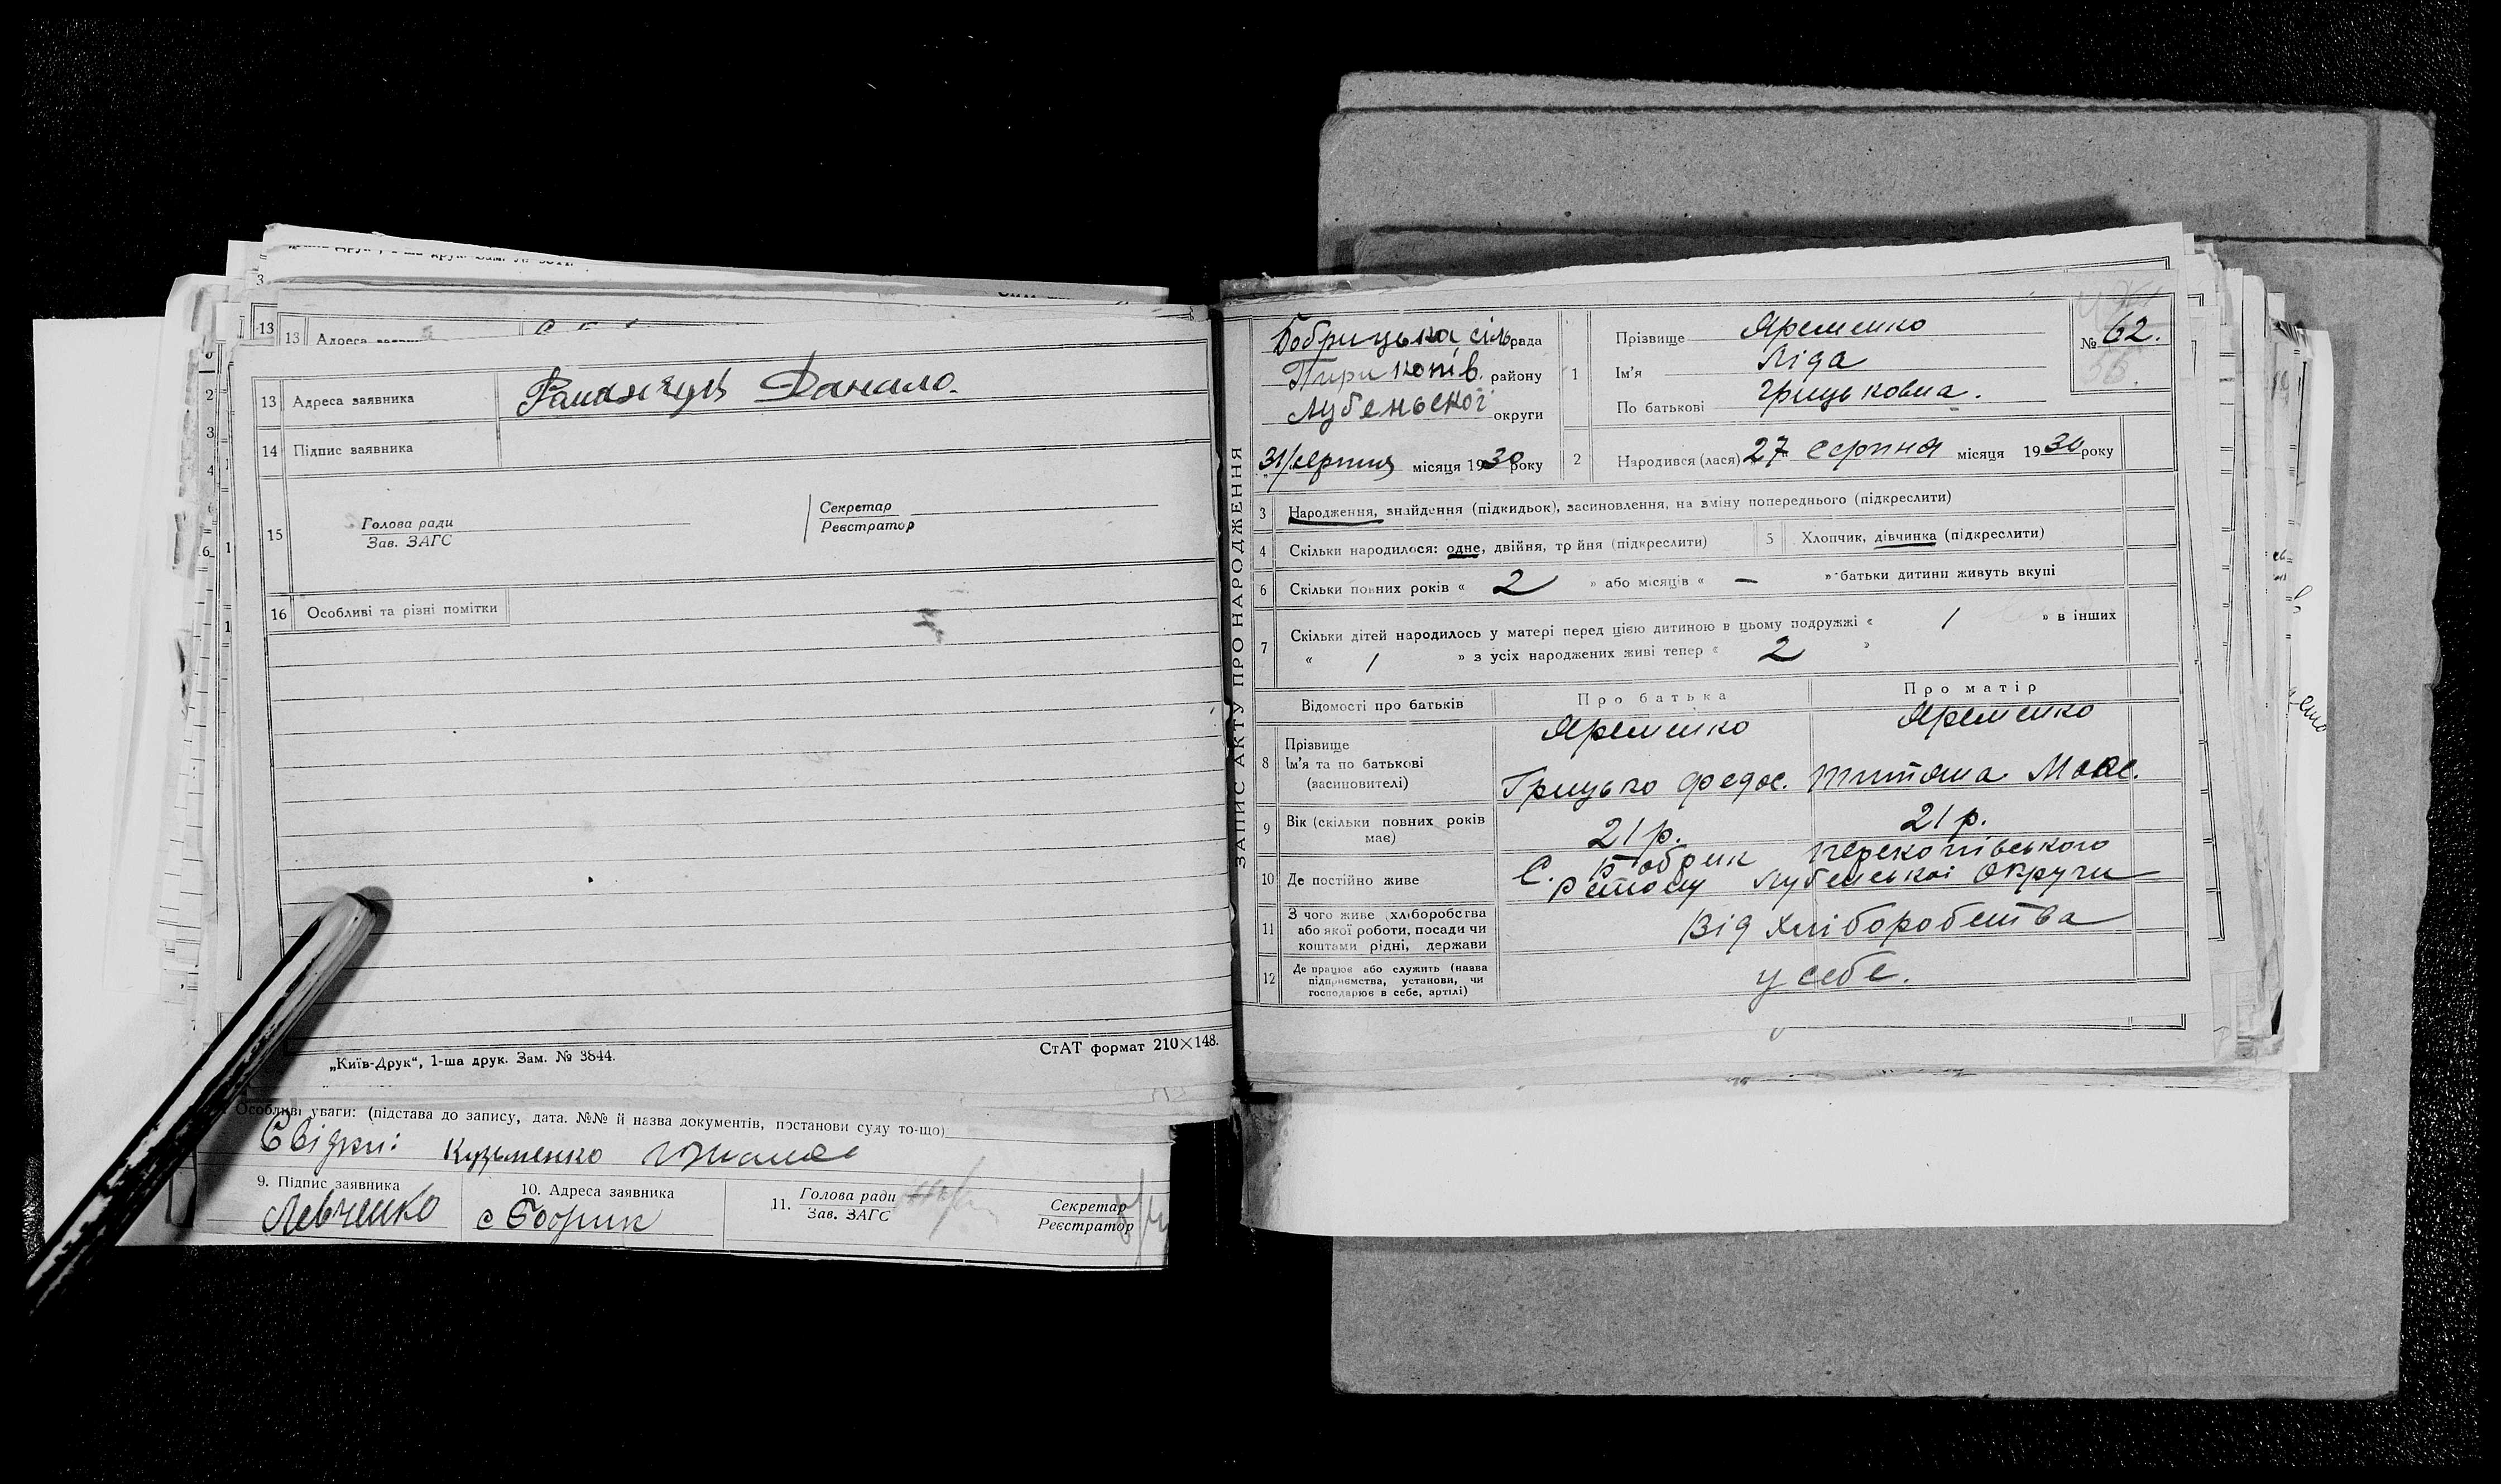 13 Адреса заявника
13 Адреса заявника Данило.
14 Підпис заявника
15 Голова ради
Зав. ЗАГС
Секретар
Реєстратор
16 Особливі та різні помітки
„Київ-Друк“, 1-ша друк. Зам. № 3844.
СтАТ формат 210×148.
Особливі уваги: (підстава до запису, дата. №№ й назва документів, постанови суду то-що)
Свідки: Кузьменко
9. Підпис заявника
Левченко
10. Адреса заявника
с Бобрик
11. Голова ради
Зав. ЗАГС
Секретар
Реєстратор
ЗАПИС АКТУ ПРО НАРОДЖЕННЯ
Бобрицька сільрада
Пирикопів. району
Лубеньскої округи
31/серпня місяця 1930 року
1 Прізвище Яременко
Ім'я Ліда
По батькові Грицьковна.
№ 62.
2 Народився (лася) „27“ серпня місяця 1930 року
3 Народження, знайдення (підкидьок), засиновлення, на зміну попереднього (підкреслити)
4 Скільки народилося: одне, двійня, трійня (підкреслити)
5 Хлопчик, дівчинка (підкреслити)
6 Скільки повних років « 2 » або місяців « — » батьки дитини живуть вкупі
7 Скільки дітей народилось у матері перед цією дитиною в цьому подружжі « 1 » в інших
« 1 » з усіх народжених живі тепер « 2 »
Відомості про батьків Про батька Про матір
8 Прізвище
Ім'я та по батькові
(засиновителі)
Яременко Яременко
Грицько Федос. Титяна
9 Вік (скільки повних років має) 21 р. 21 р.
10 Де постійно живе С. Бобрик Перекопівського
Лубенської Округи
11 З чого живе (хліборобства
або якої роботи, посади чи
коштами рідні, держави
Від хліборобства
12 Де працює або служить (назва
підприємства, установи, чи
господарює в себе, артілі)
у себе.